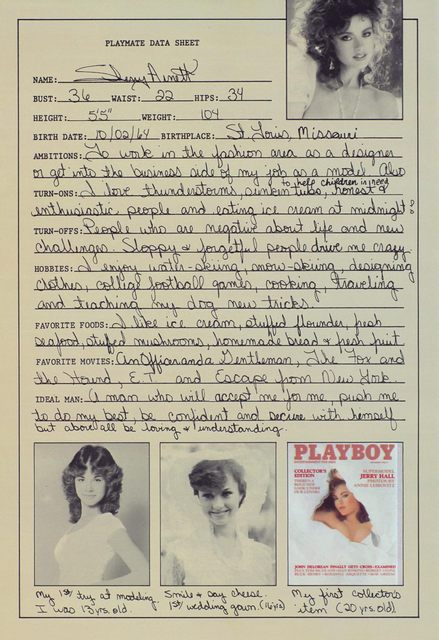 PLAYMATE DATA SHEET
NAME: Sherry Arnett
BUST: 36 WAIST: 22 HIPS: 34
HEIGHT: 5'5" WEIGHT: 104
BIRTH DATE: 10/02/64 BIRTHPLACE: St. Louis, Missouri
AMBITIONS: To work in the fashion area as a designer
or get into the business side of my job as a model. Also
to help children in need
TURN-ONS: I love thunderstorms, sunken tubs, honest &
enthusiastic people and eating ice cream at midnight!
TURN-OFFS: People who are negative about life and new
challenges. Sloppy & forgetful people drive me crazy.
HOBBIES: I enjoy water-skiing, snow-skiing, designing
clothes, college football games, cooking, traveling
and teaching my dog new tricks.
FAVORITE FOODS: I like ice cream, stuffed flounder, fresh
seafood, stuffed mushrooms, homemade bread & fresh fruit
FAVORITE MOVIES: An Officer and a Gentleman, The Fox and
the Hound, E.T. and Escape from New York
IDEAL MAN: A man who will accept me for me, push me
to do my best, be confident and secure with himself
but above all be loving & understanding.
PLAYBOY
ENTERTAINMENT FOR MEN
COLLECTOR'S
EDITION
SUPERMODEL
JERRY HALL
PHOTOS BY
ANNIE LEIBOVITZ
JOHN DELOREAN FINALLY GETS CROSS-EXAMINED
My 1st try at modeling.
I was 13 yrs. old.
Smile & say cheese.
1st wedding gown. (16 yrs)
My first collector's
item (20 yrs. old)